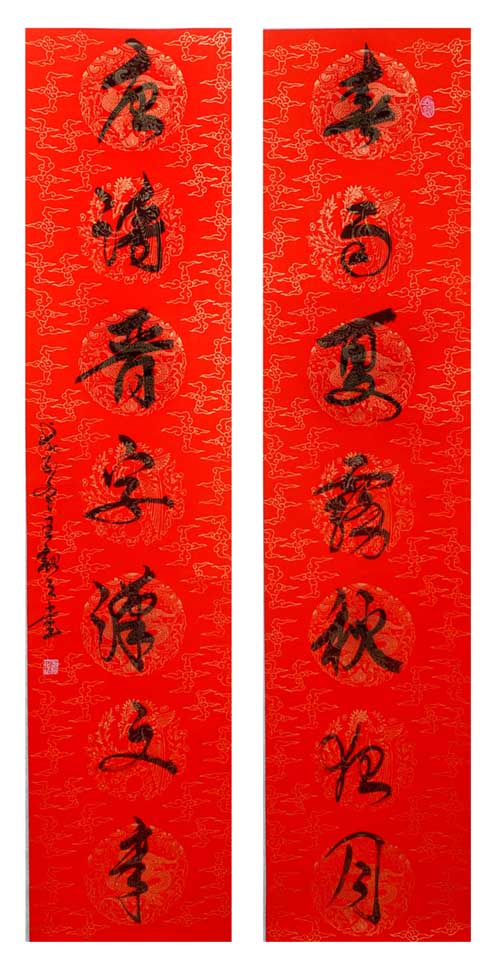 春雨夏霧秋夜月
唐詩晋字漢文章